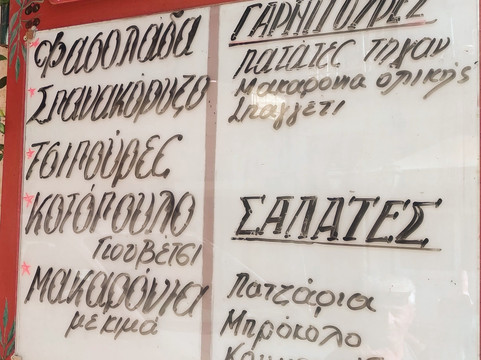 Φασολάδα
Σπανακόρυζο
Τσιπούρες
ΚΟΤόΠΟΥλΟ
Γιουβέτσι
Μακαρόνια
με κιμά
ΓΑΡΝΙΤΟΥΡΕΣ
Πατάτες Τηγαν
Μακαρόνια ολικής
Σπαγγέτι
ΣΑΛΑΤΕΣ
Πατζάρια
Μπρόκολο